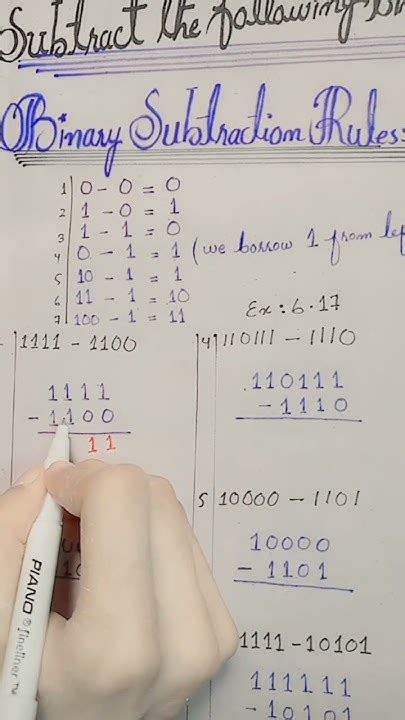 Subtract the following
Binary Subtraction Rules:
1 0 - 0 = 0
2 1 - 0 = 1
3 1 - 1 = 0
4 0 - 1 = 1 (we borrow 1 from
5 10 - 1 = 1
6 11 - 1 = 10
7 100 - 1 = 11
Ex: 6.17
1111 - 1100
1111
- 1100
11
4 110111 - 1110
110111
- 1110
5 10000 - 1101
10000
- 1101
1111 - 10101
111111
- 10101
PIANO® fineliner™